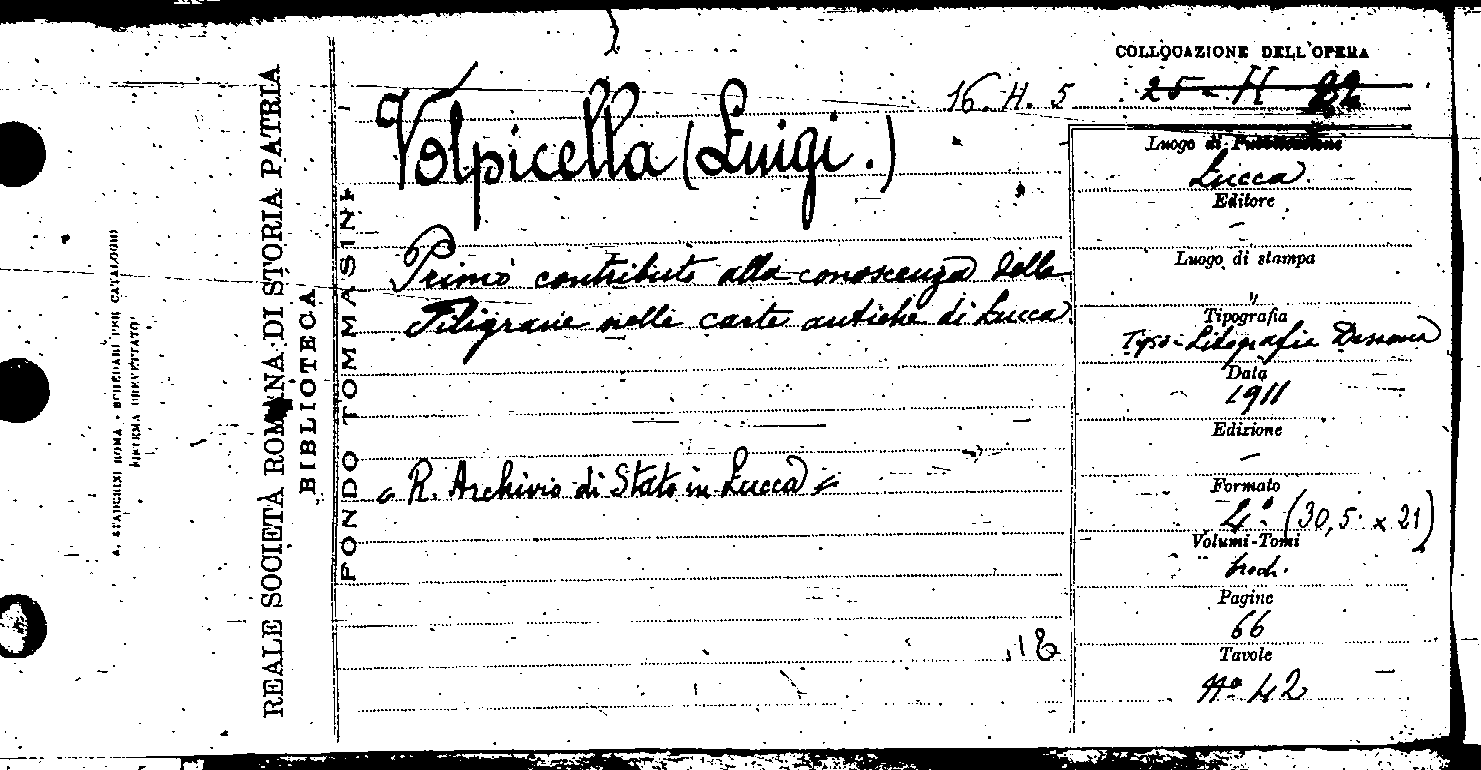 A. STADERINI ROMA - SCHEDARI PER CATALOGO
SISTEMA BREVETTATO
REALE SOCIETÀ ROMANA DI STORIA PATRIA
BIBLIOTECA
FONDO TOMMASINI
Volpicella (Luigi.)
16. H. 5
Primo contributo alla conoscenza delle
Filigrane nelle carte antiche di Lucca.
« R. Archivio di Stato in Lucca »
COLLOCAZIONE DELL'OPERA
25 - H 22
Luogo di Pubblicazione
Lucca.
Editore
–
Luogo di stampa
"
Tipografia
Tipo-Litografia
Data
1911
Edizione
–
Formato
4º. (30,5 x 21)
Volumi-Tomi
broch.
Pagine
66
Tavole
Nº 42